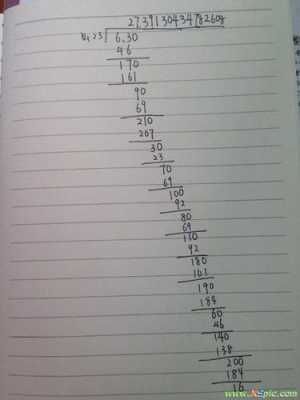 27.39130434782608
0.23 6.30
46
170
161
90
69
210
207
30
23
70
69
100
92
80
69
110
92
180
161
190
184
60
46
140
138
200
184
16